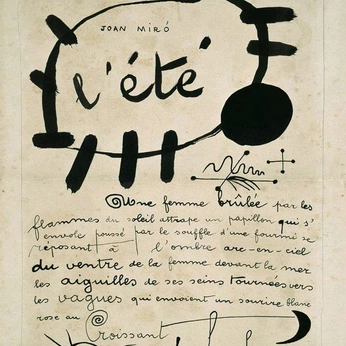 JOAN MIRÓ
l'été
Une femme brûlée par les
flammes du soleil attrape un papillon qui s'
envole poussé par le souffle d'une fourmi se
réposant à l'ombre arc-en-ciel
du ventre de la femme devant la mer
les aiguilles de ses seins tournées vers
les vagues qui envoient un sourire blanc
rose au Croissant